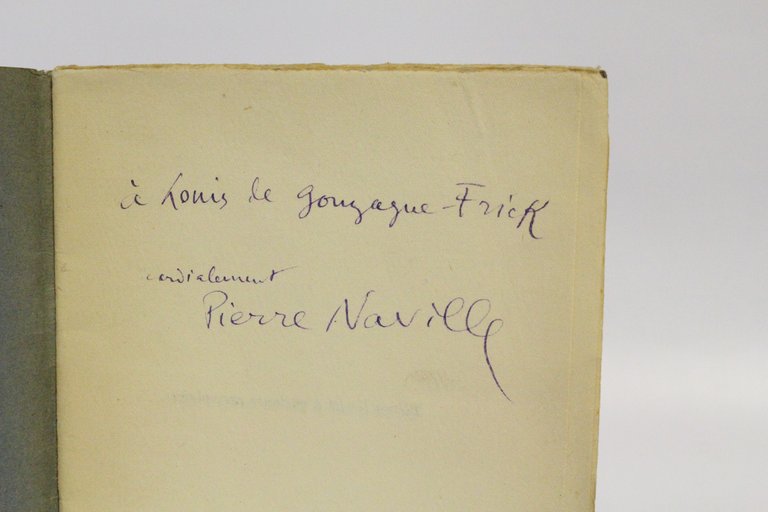 à Louis de Gonzague-Frick
cordialement
Pierre Naville